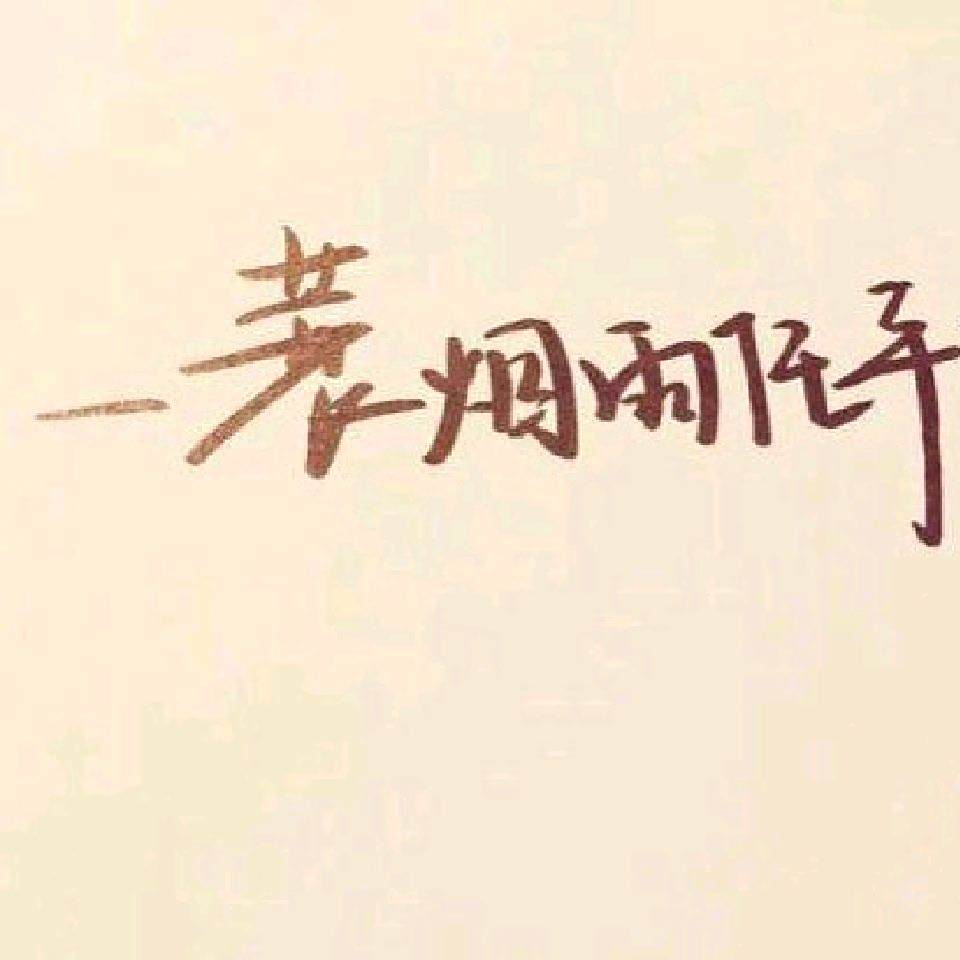 一蓑烟雨任平